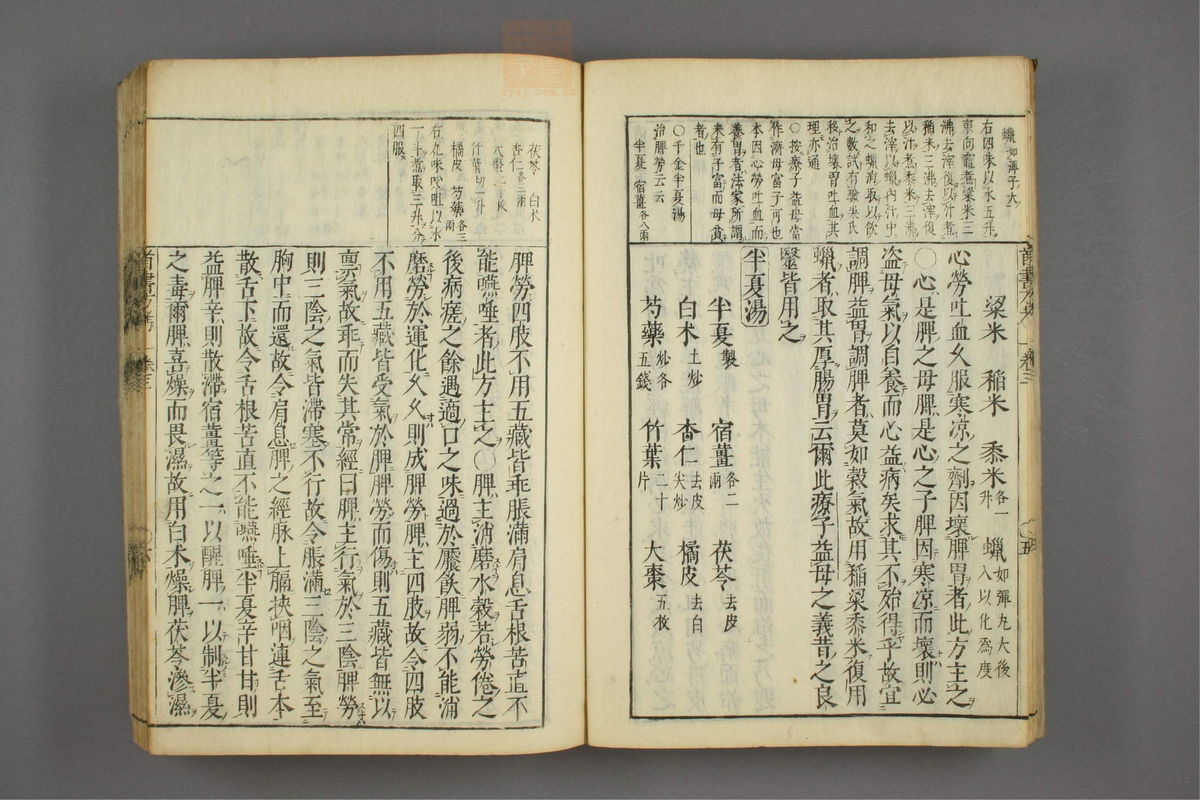 粱米 稻米 黍米各一升 蠟如彈丸大後入以化為度
心勞吐血久服寒凉之劑因壞脾胃者此方主之
〇心是脾之母脾是心之子脾因寒凉而壞則必
盗母氣以自養而心益病矣求其不殆得乎故宜
調脾益胃調脾者莫如穀氣故用稻粱黍米復用
蠟者取其厚腸胃云爾此療子益母之義昔之良
醫皆用之
半夏湯
半夏製 宿薑各二兩 茯苓去皮
白术土炒 杏仁去皮尖炒 橘皮去白
芍藥炒各五錢 竹葉二十片 大棗五枚
蠟如彈子大
右四味以水五升
東向竈煮粱米三
沸去滓復以汁煮
稻米三沸去滓復
以汁煮黍米三沸
去滓以蠟內汁中
和之蠟消取以飲
之數試有驗吳氏
移治壞胃吐血其
理亦通
〇按療子益母當
作濟母富子可也
本因心勞吐血而
養胃者法家所謂
未有子富而母貧
者也
〇千金半夏湯
治脾勞云云
半夏 宿薑各八兩
脾勞四肢不用五藏皆乖脹滿肩息舌根苦直不
能嚥唾者此方主之〇脾主消磨水穀若勞倦之
後病瘥之餘遇適口之味過於饜飫脾弱不能消
磨勞於運化久久則成脾勞脾主四肢故令四肢
不用五藏皆受氣於脾脾勞而傷則五藏皆無以
禀氣故乖而失其常經曰脾主行氣於三陰脾勞
則三陰之氣皆滯塞不行故令脹滿三陰之氣至
胸中而還故令肩息脾之經脉上膈挾咽連舌本
散舌下故令舌根苦直不能嚥唾半夏辛甘甘則
益脾辛則散滯宿薑等之一以醒脾一以制半夏
之毒爾脾喜燥而畏濕故用白术燥脾茯苓滲濕
茯苓 白术
杏仁各三兩
大棗二十枚
竹葉切一升
橘皮 芍藥各三兩
右九味㕮咀以水
一斗煮取三升分
四服